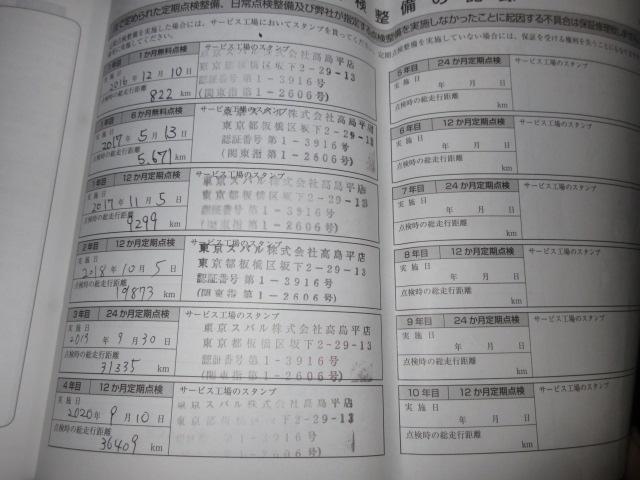 検整備の記録
で定められた定期点検整備、日常点検整備及び弊社が指定する点検整備を実施しなかったことに起因する不具合は保証修理致しま
点検整備を実施した場合には、サービス工場においてスタンプを貰ってください。
定期点検整備を実施していない場合には、保証を受ける権利を失うことにな
してください。
1か月無料点検
サービス工場のスタンプ
実施日
2016年12月10日
点検時の総走行距離
822 km
東京スバル株式会社高島平店
東京都板橋区坂下2-29-13
認証番号第1-3916号
(関東指第1-2606号)
6か月無料点検
サービス工場のスタンプ
実施日
2017年5月13日
点検時の総走行距離
5,671 km
東京スバル株式会社高島平店
東京都板橋区坂下2-29-13
認証番号第1-3916号
(関東指第1-2606号)
1年目 12か月定期点検
サービス工場のスタンプ
実施日
2017年11月5日
点検時の総走行距離
9299 km
東京スバル株式会社高島平店
東京都板橋区坂下2-29-13
認証番号第1-3916号
(関東指第1-2606号)
2年目 12か月定期点検
サービス工場のスタンプ
実施日
2018年10月5日
点検時の総走行距離
19873 km
東京スバル株式会社高島平店
東京都板橋区坂下2-29-13
認証番号第1-3916号
(関東指第1-2606号)
3年目 24か月定期点検
サービス工場のスタンプ
実施日
2019年9月30日
点検時の総走行距離
31335 km
東京スバル株式会社高島平店
東京都板橋区坂下2-29-13
認証番号第1-3916号
(関東指第1-2606号)
4年目 12か月定期点検
サービス工場のスタンプ
実施日
2020年9月10日
点検時の総走行距離
36409 km
東京スバル株式会社高島平店
東京都板橋区坂下2-29-13
認証番号第1-3916号
(関東指第1-2606号)
5年目 24か月定期点検
サービス工場のスタンプ
実施日
年 月 日
点検時の総走行距離
km
6年目 12か月定期点検
サービス工場のスタンプ
実施日
年 月 日
点検時の総走行距離
km
7年目 24か月定期点検
サービス工場のスタンプ
実施日
年 月 日
点検時の総走行距離
km
8年目 12か月定期点検
サービス工場のスタンプ
実施日
年 月 日
点検時の総走行距離
km
9年目 24か月定期点検
サービス工場のスタンプ
実施日
年 月 日
点検時の総走行距離
km
10年目 12か月定期点検
サービス工場のスタンプ
実施日
年 月 日
点検時の総走行距離
km